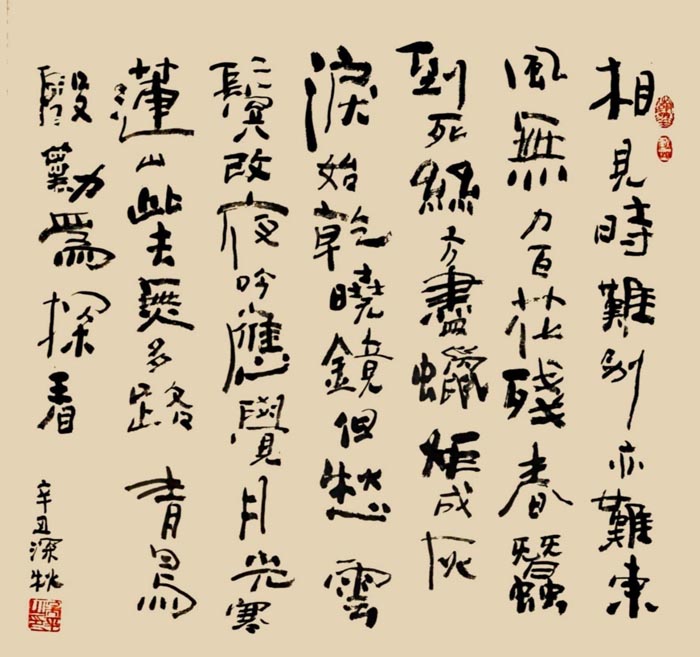 相見時難別亦難東
風無力百花殘春蠶
到死絲方盡蠟炬成灰
淚始乾曉鏡但愁雲
鬢改夜吟應覺月光寒
蓬山此去無多路青鳥
殷勤為探看
辛丑深秋